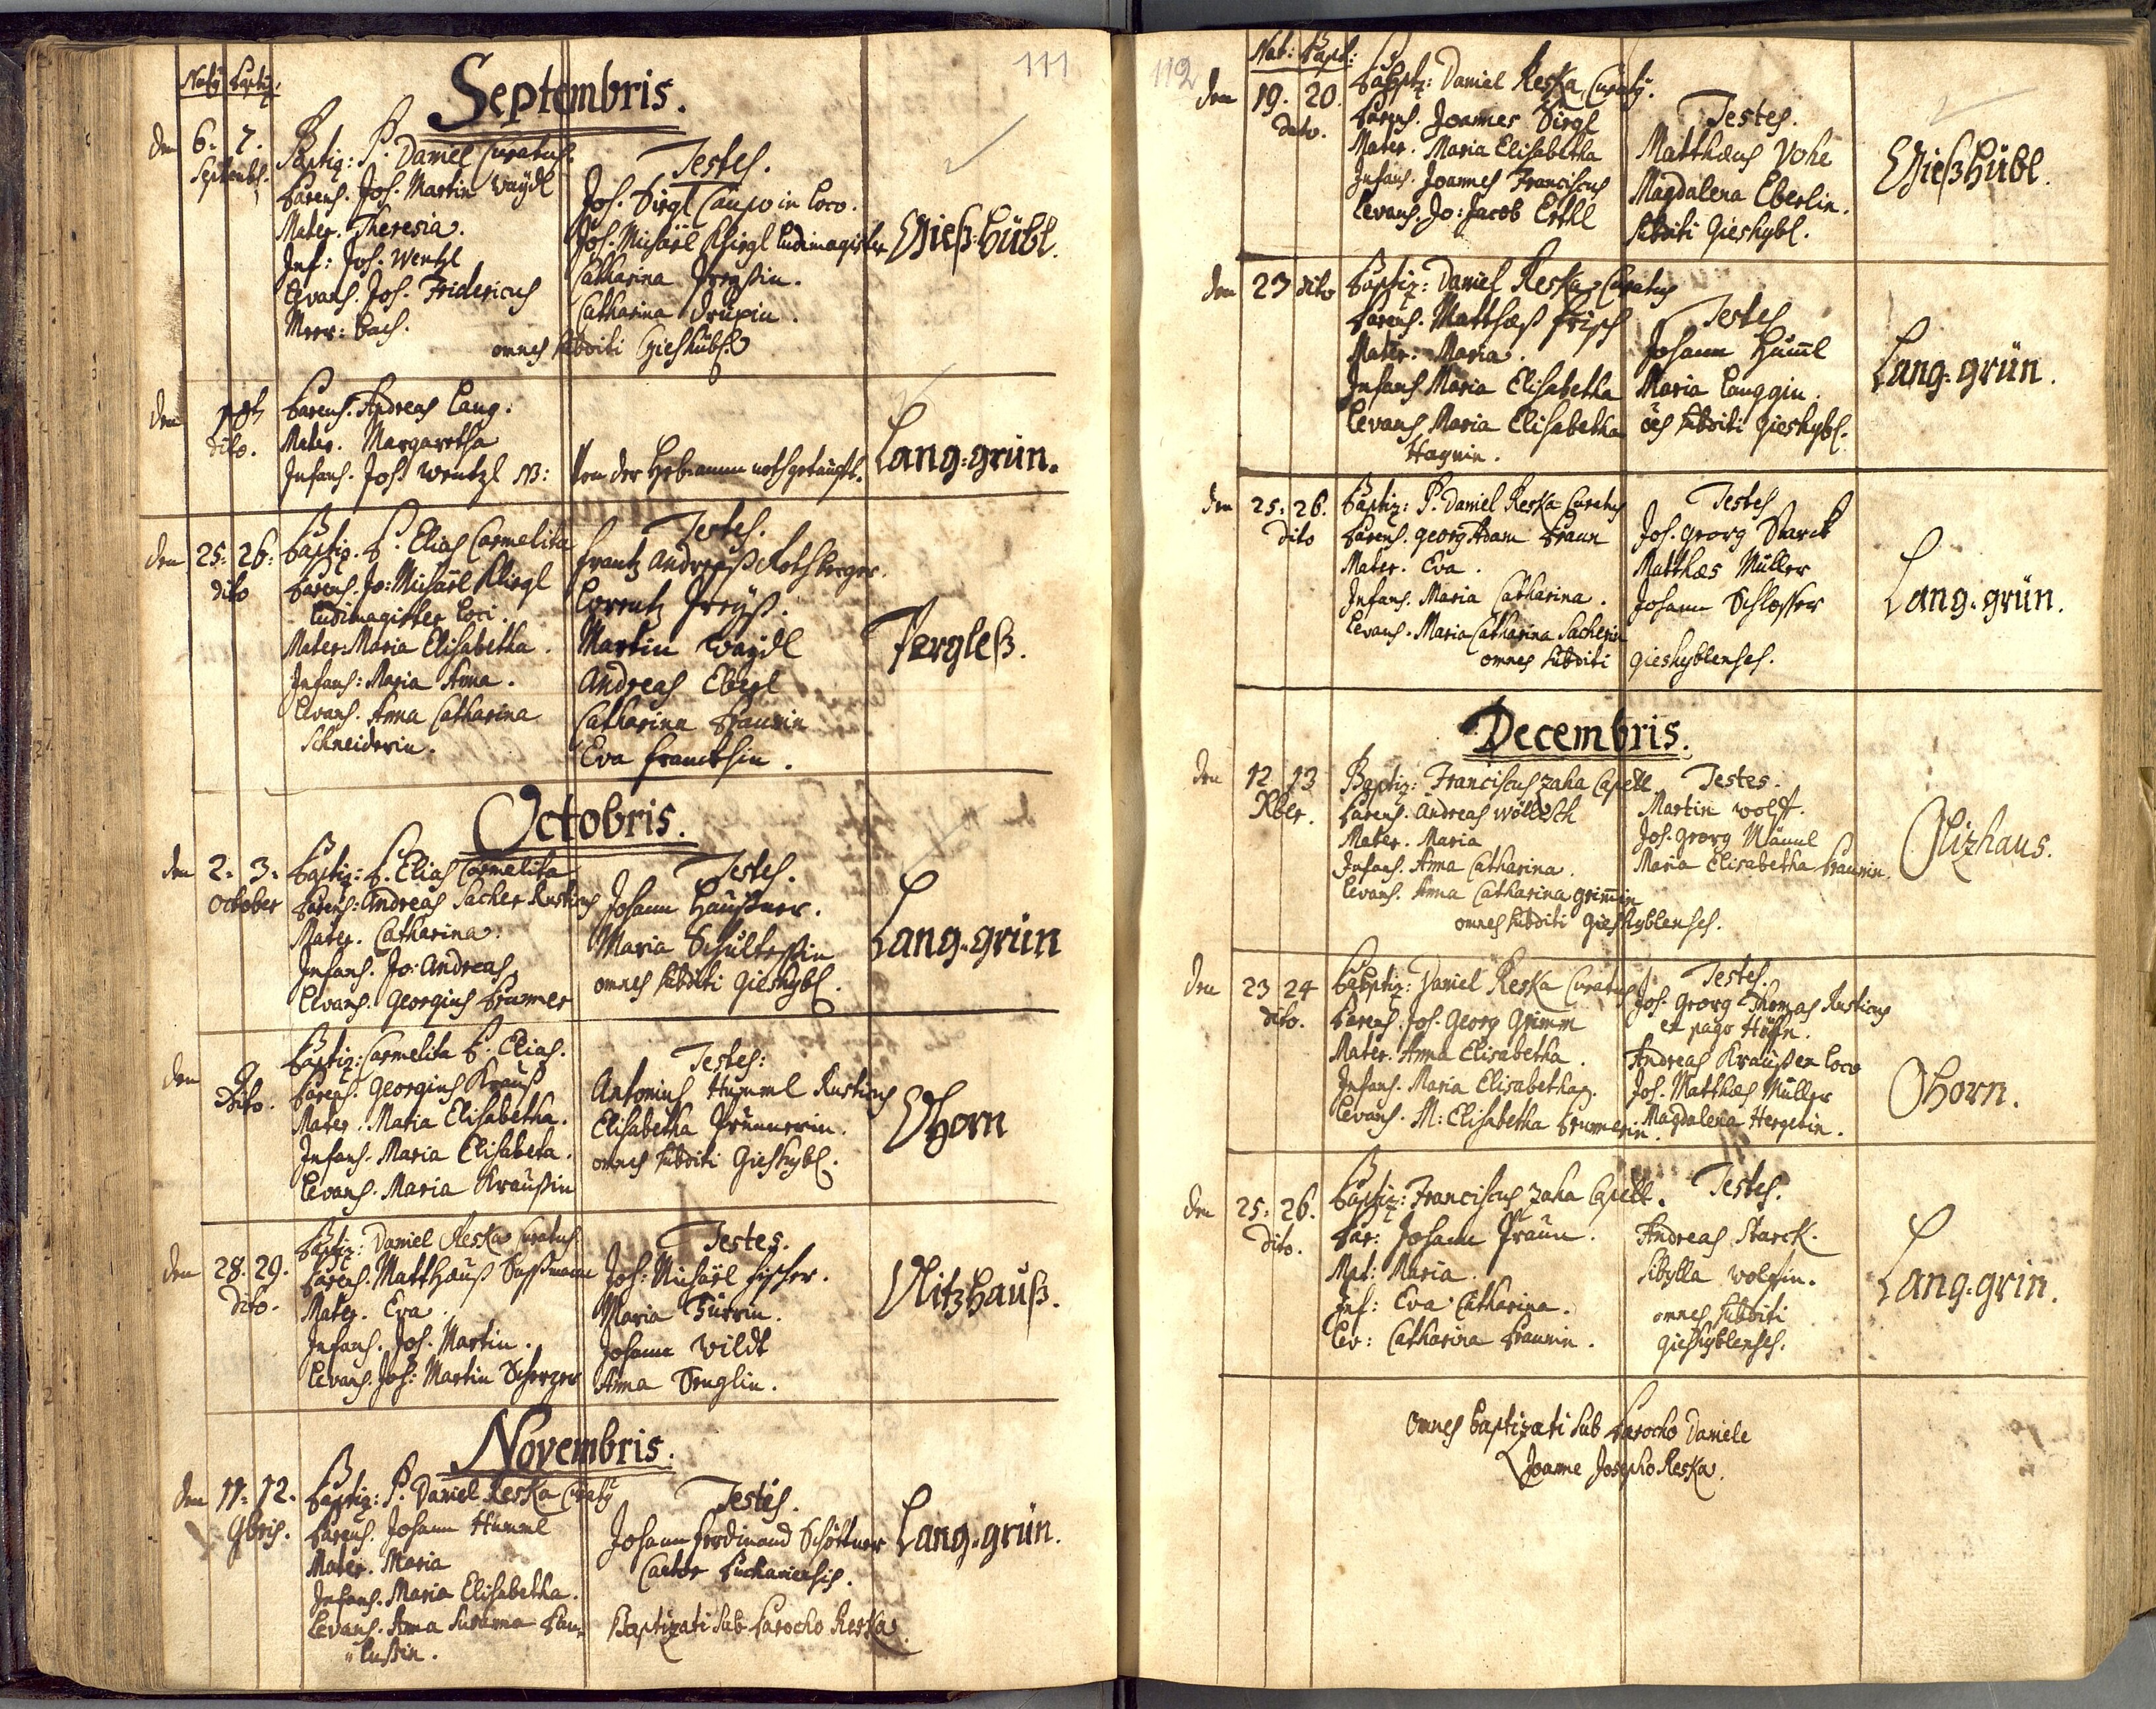 111
Natg Baptiz:
Septembris.
den 6. 7. Septembr.
Baptiz: P. Daniel Curatus.
Parens. Joh. Martin Waydl
Mater. Theresia.
Inf: Joh. Wentzl
Levans. Joh. Fridericus
Testes.
Joh. Sirgl Caupo in loco.
Joh. Michaël Kliegl ludimagister
Catharina
Catharina
omnes subditi Gieshübl.
Gieß-hübl.
den
dito.
Parens. Andreas Lang.
Mater. Margaretha
Infans. Joh. Wentzl NB: von der Hebamm nothgetaufft.
Lang-grün.
den 25. 26. dito
Baptiz. P. Elias Carmelita
Parens. Jo: Michaël Kliegl
ludimagister loci.
Mater. Maria Elisabetha.
Infans: Maria Anna.
Levans. Anna Catharina
Schneiderin.
Testes.
Frantz Andreaß Rothberger.
Lorentz Preyß.
Martin Waydl
Andreas Eberl
Catharina Braunin
Eva
Pergleß.
Octobris.
den 2. 3. October
Baptiz: P. Elias Carmelita
Parens: Andreas Sacher Rusticus
Mater. Catharina.
Infans. Jo: Andreas
Levans. Georgius
Testes.
Johann Haußner.
Maria Schulteßin
omnes subditi Gieshybl.
Lang-grün
den
dito.
Baptiz: Carmelita P. Elias.
Parens. Georgius Krauß
Mater. Maria Elisabetha.
Infans. Maria Elisabeta.
Levans. Maria Kraußin
Testes:
Antonius Hummel Rusticus
Elisabetha Prunnerin.
omnes subditi Gieshybl.
Ohorn
den 28. 29. dito.
Baptiz: Daniel Reska Curatus
Parens. Matthæuß
Mater. Eva.
Infans. Joh. Martin.
Levans. Joh: Martin Scherzer
Testes.
Joh: Michaël Fischer.
Maria
Johann Wildt
Anna
Olitzhauß.
Novembris.
den 11. 12. 9bris.
Baptiz: P. Daniel Reska Curatg
Parens. Johann Hummel
Mater. Maria
Infans. Maria Elisabetha.
Levans. Anna Susanna Pau=
"lußin.
Testes.
Johann Ferdinand Schöttner
Baptizati sub Parocho Reska.
Lang-grün.
112
Nat: Bapt:
den 19. 20. dito.
Baptz: Daniel Reska Curatg.
Parens. Joannes Sirgl
Mater. Maria Elisabetha
Infans. Joannes Franciscus
Levans. Jo: Jacob Ertl
Testes.
Matthæus Vohe
Magdalena Eberlin.
subditi Gieshybl.
Gießhübl.
den 23 dito
Baptiz: Daniel Reska Curatus
Parens. Matthæß
Mater. Maria.
Infans. Maria Elisabetha
Levans. Maria Elisabetha
Testes
Johann Huml
Maria Langgin.
oes subditi Gieshybl.
Lang-grün.
den 25. 26. dito
Baptiz: P. Daniel Reska Curatus
Parens. Georg Adam Braun
Mater. Eva.
Infans. Maria Catharina.
Levans. Maria Catharina Sacherin
Testes
Joh. Georg Starck
Matthæs Müller
Johann Schlosser
omnes subditi Gieshyblenses.
Lang-grün.
Decembris.
den 12 13 Xber.
Baptiz: Franciscus Zaha Capell.
Parens. Andreas
Mater. Maria
Infans. Anna Catharina.
Levans. Anna Catharina Grimin
Testes.
Martin Wolff.
Joh. Georg
Maria Elisabetha Braunin.
omnes subditi Gieshyblenses.
Olizhaus.
den 23 24 dito.
Baptiz: Daniel Reska Curatus
Parens. Joh. Georg Grimm
Mater. Anna Elisabetha.
Infans. Maria Elisabetha.
Levans. M: Elisabetha Brunnerin.
Testes.
Joh. Georg Thomas Rusticus
ex pago
Andreas Krauß ex loco
Joh. Matthæs Müller
Magdalena Hergetin.
Ohorn.
den 25. 26. dito.
Baptiz: Franciscus Zaha Capell.
Par: Johann Praun.
Mat: Maria.
Inf: Eva Catharina.
Lev: Catharina Braunin.
Testes.
Andreas Starck.
Sibylla Wolfin.
omnes subditi
Gieshyblenses.
Lang-grin.
Omnes baptizati sub Parocho Daniele
Joanne Josepho Reska.